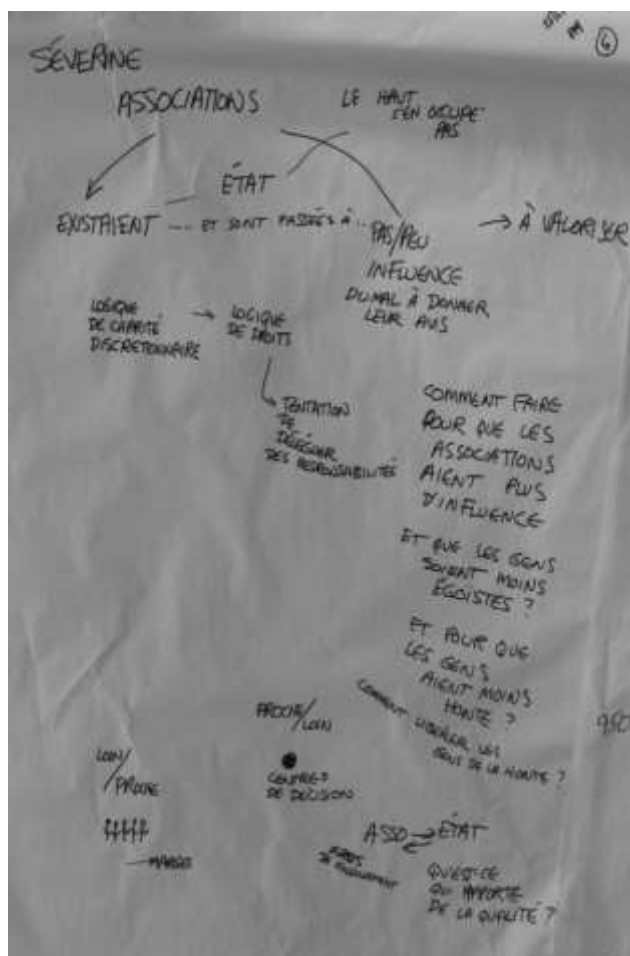 6
SÉVERINE
ASSOCIATIONS
LE HAUT
S'EN OCCUPE
PAS
ÉTAT
EXISTAIENT --- ET SONT PASSÉES À ...
PAS/PEU
INFLUENCE
DU MAL À DONNER
LEUR AVIS
→ À VALORISER
LOGIQUE
DE CHARITÉ
DISCRETIONNAIRE
→ LOGIQUE
DE DROITS
TENTATION
DE
DÉLÉGUER
DES RESPONSABILITÉS
COMMENT FAIRE
POUR QUE LES
ASSOCIATIONS
AIENT PLUS
D'INFLUENCE
ET QUE LES GENS
SOIENT MOINS
ÉGOÏSTES ?
ET POUR QUE
LES GENS
AIENT MOINS
HONTE ?
COMMENT LIBÉRER LES
GENS DE LA HONTE ?
950
PROCHE/LOIN
CENTRES
DE DÉCISION
LOIN/
PROCHE
ASSO → ÉTAT
QU'EST-CE
QUI APPORTE
DE LA QUALITÉ ?